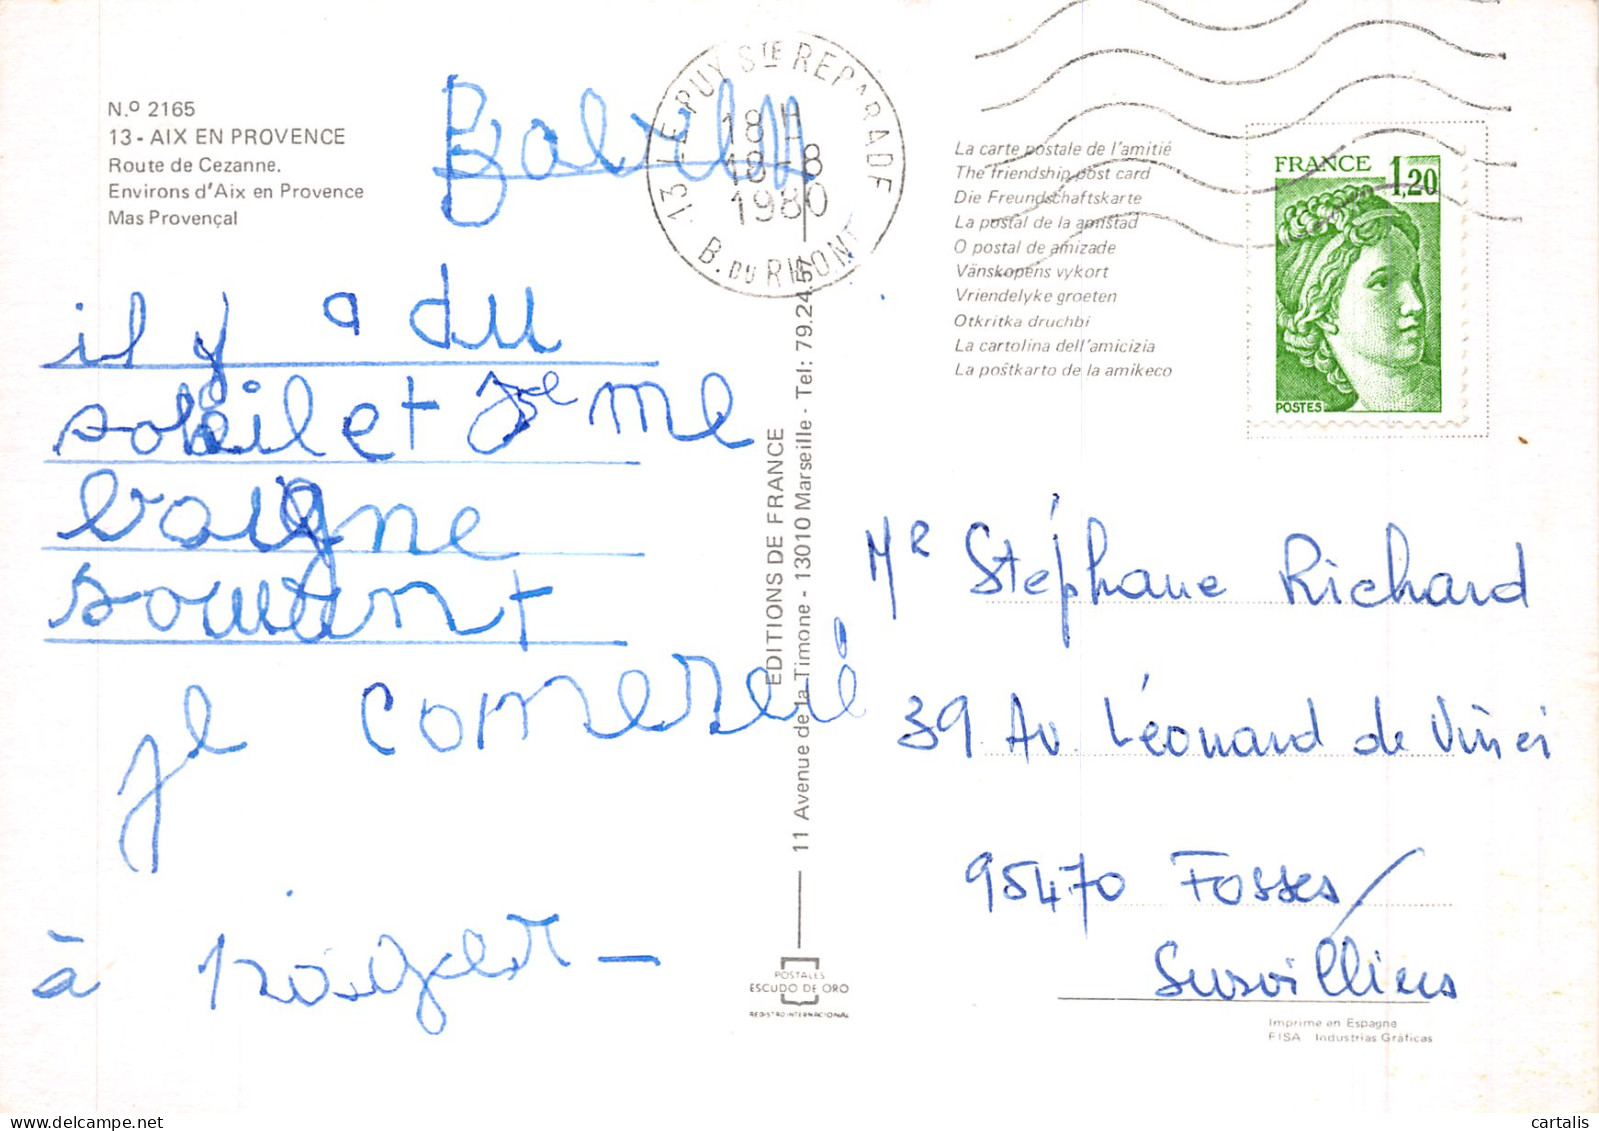 N.º 2165
13 - AIX EN PROVENCE
Route de Cezanne.
Environs d'Aix en Provence
Mas Provençal
il y a du
soleil et je me
baigne
souvent
je comencé
à naiger
13 LE PUY STE REPARADE
18 H
18-8
1980
B. DU RHONE
EDITIONS DE FRANCE
11 Avenue de la Timone - 13010 Marseille - Tel: 79.24.57
POSTALES
ESCUDO DE ORO
REGISTRO INTERNACIONAL
La carte postale de l'amitié
The friendship post card
Die Freundschaftskarte
La postal de la amistad
O postal de amizade
Vänskopens vykort
Vriendelyke groeten
Otkritka druchbi
La cartolina dell'amicizia
La poštkarto de la amikeco
FRANCE 1,20
POSTES
Mr Stéphane Richard
39 Av. Léonard de Vinci
95470 Fosses/
Survilliers
Imprime en Espagne
FISA Industrias Gráficas
cartalis